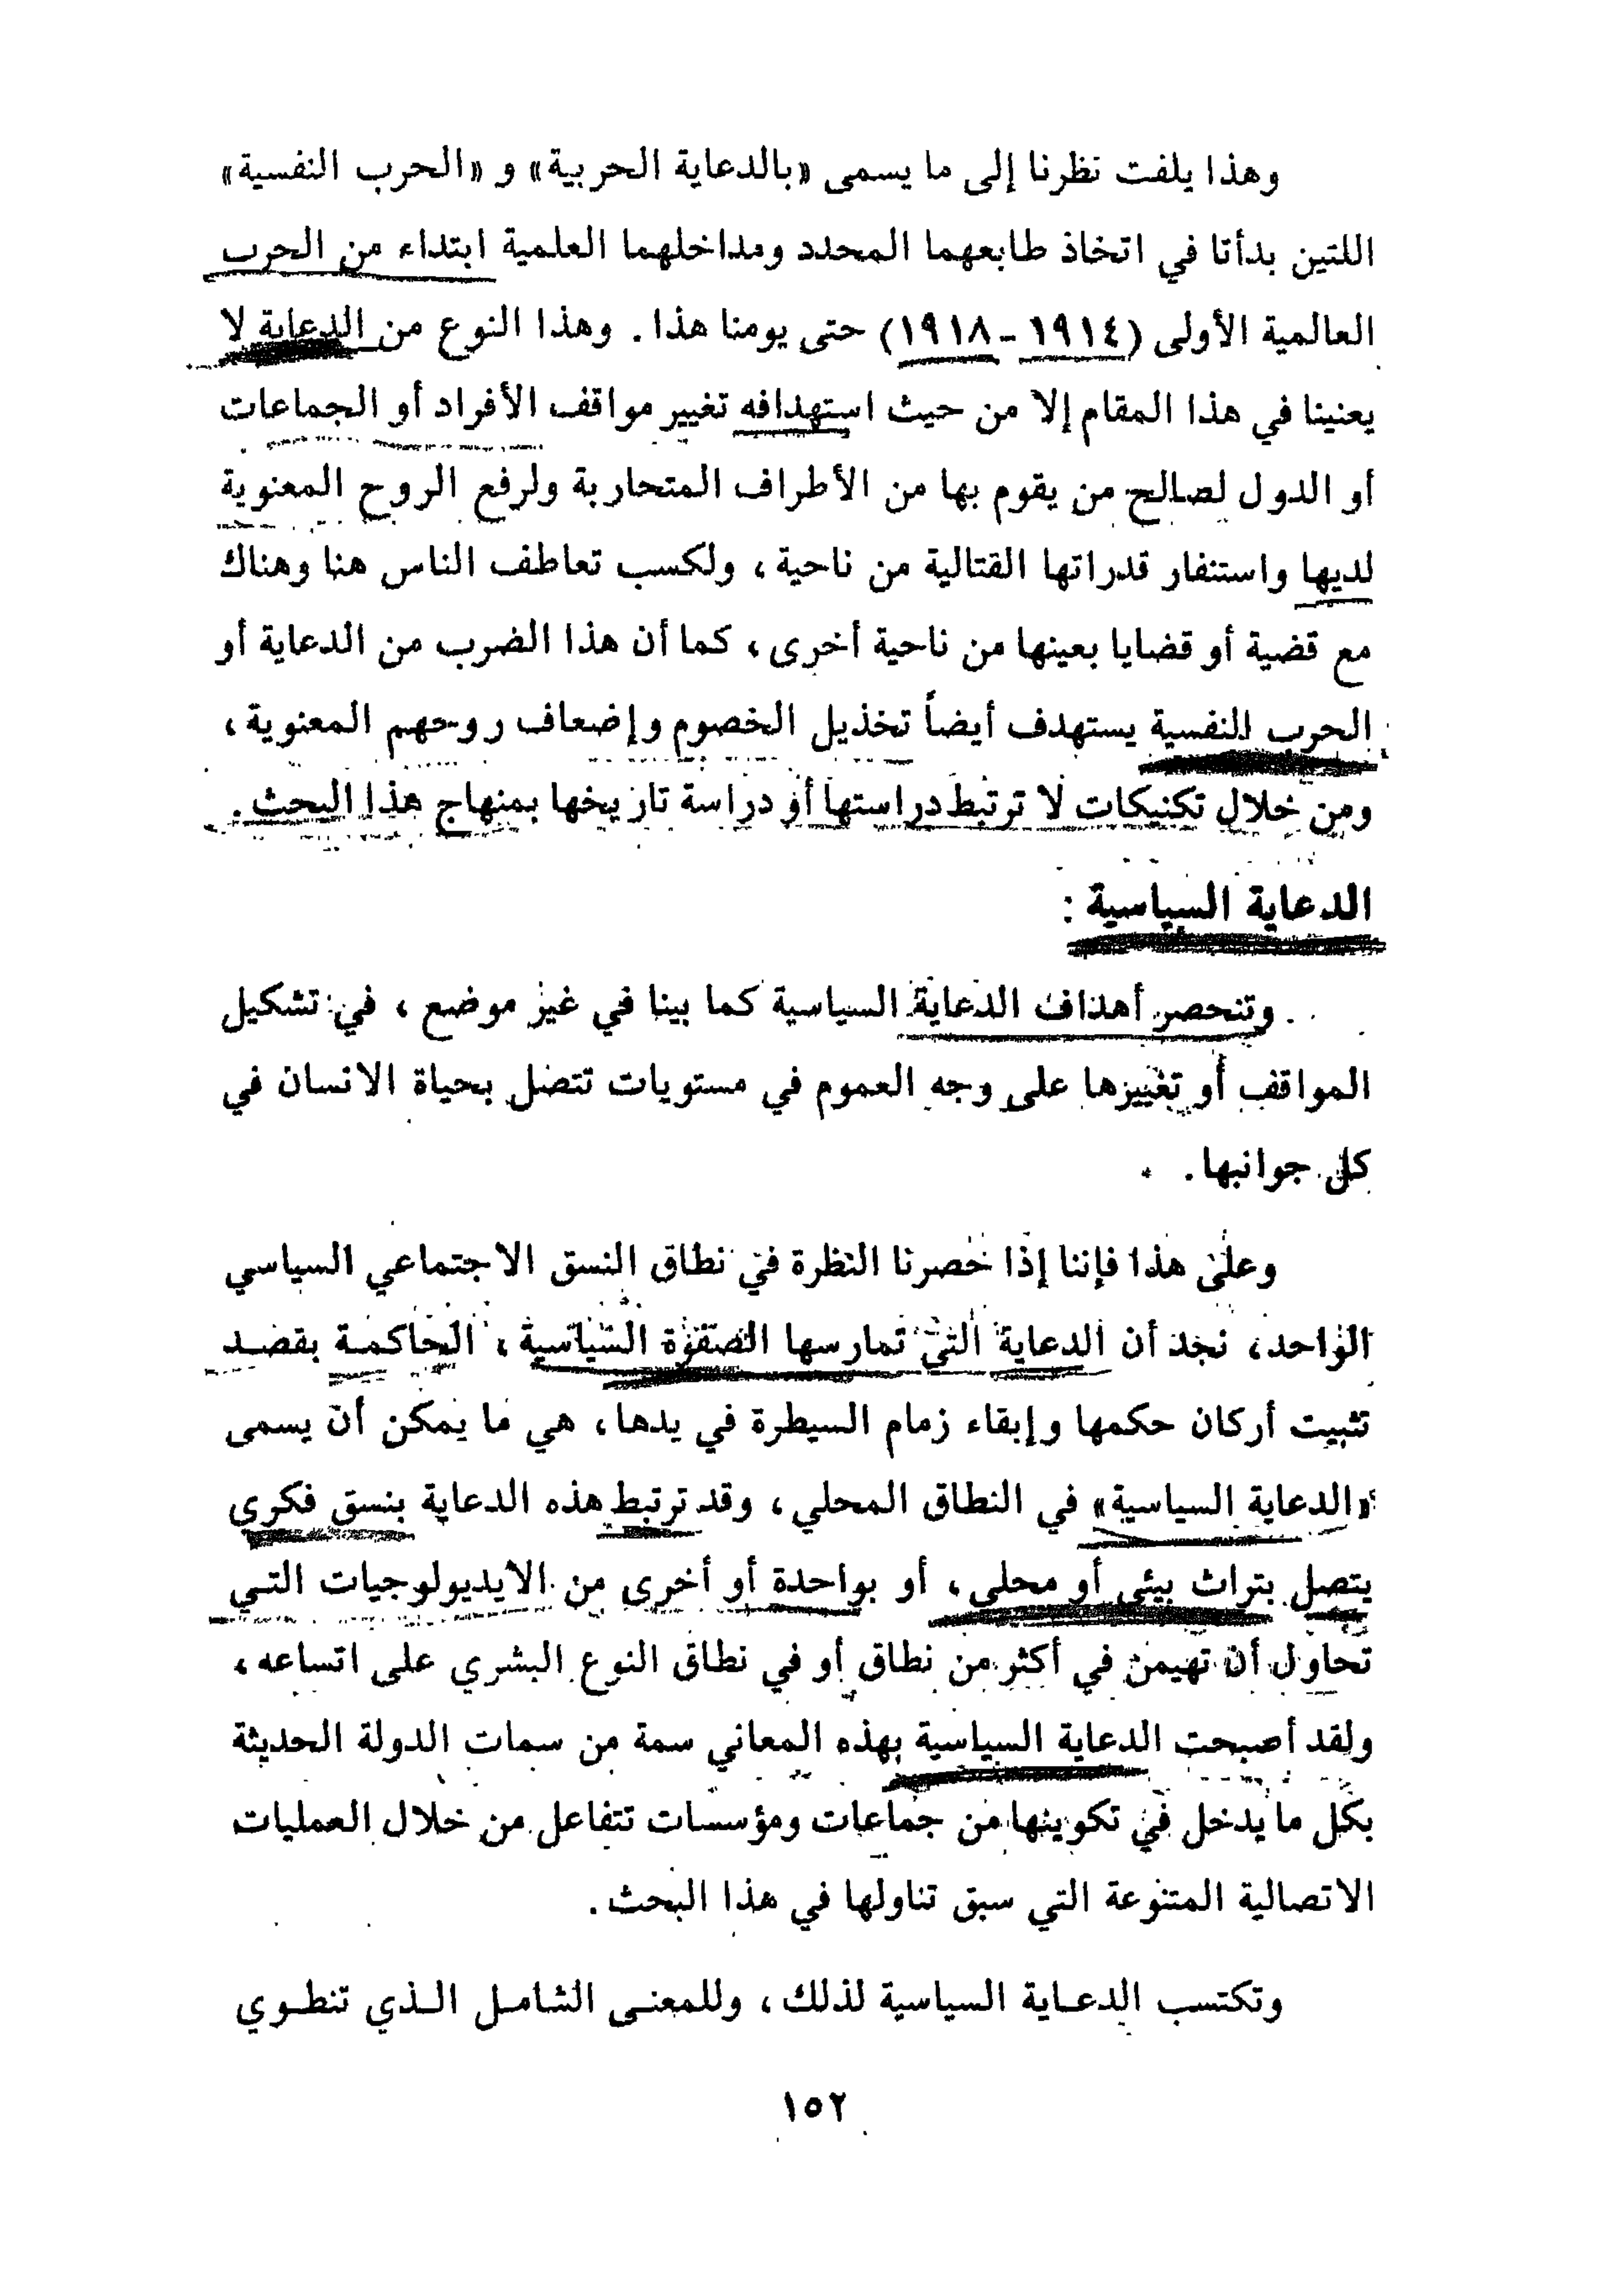 وهذا يلفت نظرنا إلى ما يسمى «بالدعاية الحربية» و «الحرب النفسية»
اللتين بدأتا في اتخاذ طابعهما المحدد ومداخلهما العلمية ابتداء من الحرب
العالمية الأولى (١٩١٤ - ١٩١٨) حتى يومنا هذا. وهذا النوع من الدعاية لا
يعنينا في هذا المقام إلا من حيث استهدافه تغيير مواقف الأفراد أو الجماعات
أو الدول لصالح من يقوم بها من الأطراف المتحاربة ولرفع الروح المعنوية
لديها واستنفار قدراتها القتالية من ناحية، ولكسب تعاطف الناس هنا وهناك
مع قضية أو قضايا بعينها من ناحية أخرى، كما أن هذا الضرب من الدعاية أو
الحرب النفسية يستهدف أيضاً تخذيل الخصوم وإضعاف روحهم المعنوية،
ومن خلال تكنيكات لا ترتبط دراستها أو دراسة تاريخها بمنهاج هذا البحث.
الدعاية السياسية :
وتنحصر أهداف الدعاية السياسية كما بينا في غير موضع، في تشكيل
المواقف أو تغييرها على وجه العموم في مستويات تتصل بحياة الانسان في
كل جوانبها.
وعلى هذا فإننا إذا حصرنا النظرة في نطاق النسق الاجتماعي السياسي
الواحد، نجد أن الدعاية التي تمارسها الصفوة السياسية، الحاكمة بقصد
تثبيت أركان حكمها وإبقاء زمام السيطرة في يدها، هي ما يمكن أن يسمى
«الدعاية السياسية» في النطاق المحلي، وقد ترتبط هذه الدعاية بنسق فكري
يتصل بتراث بيئي أو محلي، أو بواحدة أو أخرى من الايديولوجيات التي
تحاول أن تهيمن في أكثر من نطاق أو في نطاق النوع البشري على اتساعه،
ولقد أصبحت الدعاية السياسية بهذه المعاني سمة من سمات الدولة الحديثة
بكل ما يدخل في تكوينها من جماعات ومؤسسات تتفاعل من خلال العمليات
الاتصالية المتنوعة التي سبق تناولها في هذا البحث.
وتكتسب الدعاية السياسية لذلك، وللمعنى الشامل الذي تنطوي
١٥٢